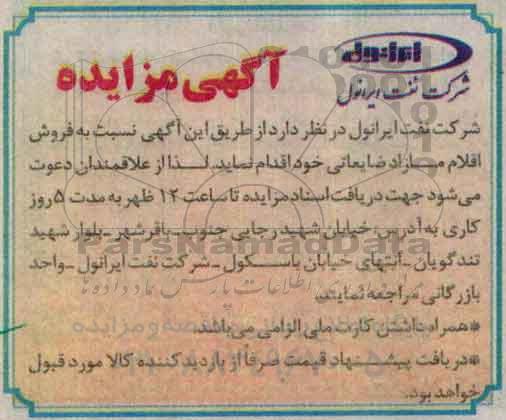 ایرانول
شرکت نفت ایرانول
آگهی مزایده
شرکت نفت ایرانول در نظر دارد از طریق این آگهی نسبت به فروش
اقلام مازاد ضایعاتی خود اقدام نماید. لذا از علاقمندان دعوت
می‌شود جهت دریافت اسناد مزایده تا ساعت ۱۲ ظهر به مدت ۵ روز
کاری به آدرس: خیابان شهید رجایی جنوب ـ باقرشهر ـ بلوار شهید
تندگویان ـ انتهای خیابان باسکول ـ شرکت نفت ایرانول ـ واحد
بازرگانی مراجعه نمایند.
*همراه داشتن کارت ملی الزامی می‌باشد.
*دریافت پیشنهاد قیمت صرفا از بازدید کننده کالا مورد قبول
خواهد بود.
ParsNamadData